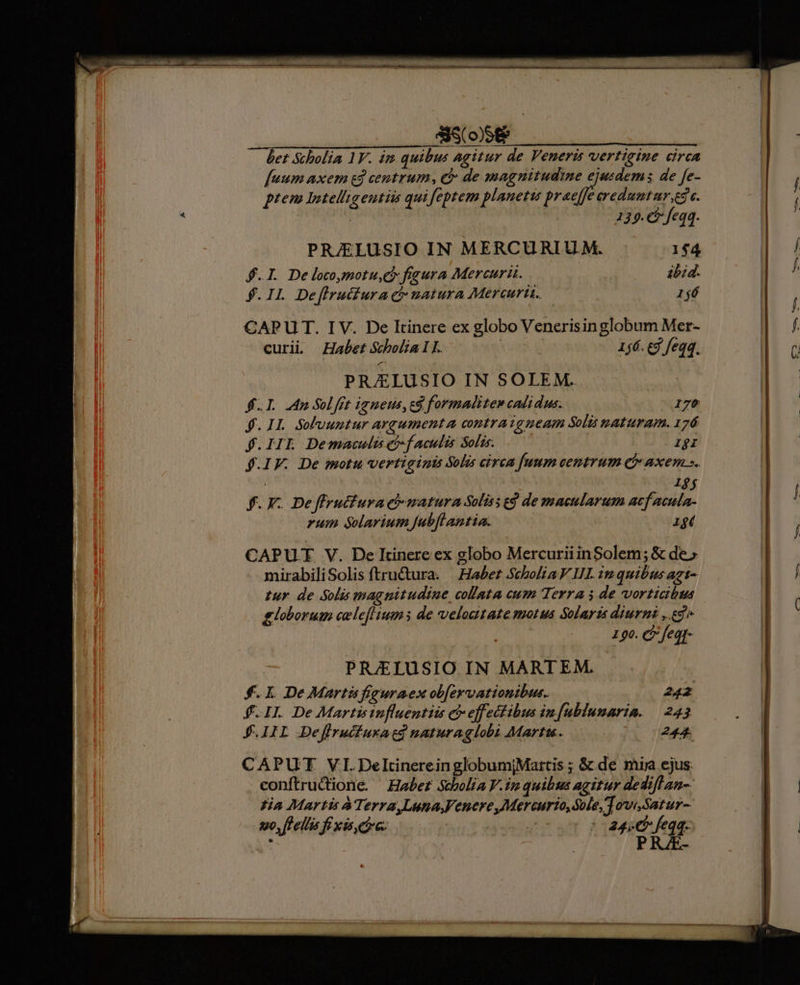 (o)
bet Scholia IV. in quibus agitur de Veneris vertigine circa
ſuum axem & centrum, & de magnitudine ejusdem; de ſe-
ptem Intelligentiis qui ſeptem planetis praeſſe creduntur, &c.
139. & ſeqq.
PRÆLUSIO IN MERCURIUM. 154
§. I. De loco, motu, & figura Mercurii. ibid.
§. II. De ſtructura & natura Mercurii. 156
CAPUT. IV. De Itinere ex globo Veneris in globum Mer-
curii. Habet Scholia II. 156. & ſeqq.
PRÆLUSIO IN SOLEM.
§. I. An Sol ſit igneus, & formaliter calidus. 170
§. II. Solvuntur argumenta contra igneam Solis naturam. 176
§. III. De maculis & faculis Solis. 181
§. IV. De motu vertiginis Solis circa ſuum centrum & axem.
185
§. V. De ſtructura & natura Solis; & de macularum ac facula-
rum Solarium ſubſtantia. 186
CAPUT V. De Itinere ex globo Mercurii in Solem; & de
mirabili Solis ſtructura. Habet Scholia VIII. in quibus agi-
tur de Solis magnitudine collata cum Terra; de vorticibus
globorum cæleſtium; de velocitate motus Solaris diurni, &
190. & ſeqq-
PRÆLUSIO IN MARTEM.
§. I. De Martis figura ex obſervationibus. 242
§. II. De Martis influentiis & effectibus in ſublunaria. 243
§. III. De ſtructura & natura globi Martis. 244
CAPUT VI. De Itinere in globum Martis; & de mira ejus
conſtructione. Habet Scholia V. in quibus agitur de diſtan-
tia Martis à Terra, Luna, Venere, Mercurio, Sole, Jovi, Satur-
no, ſtellis fixis, &c. 245. & ſeqq.
PRÆ-